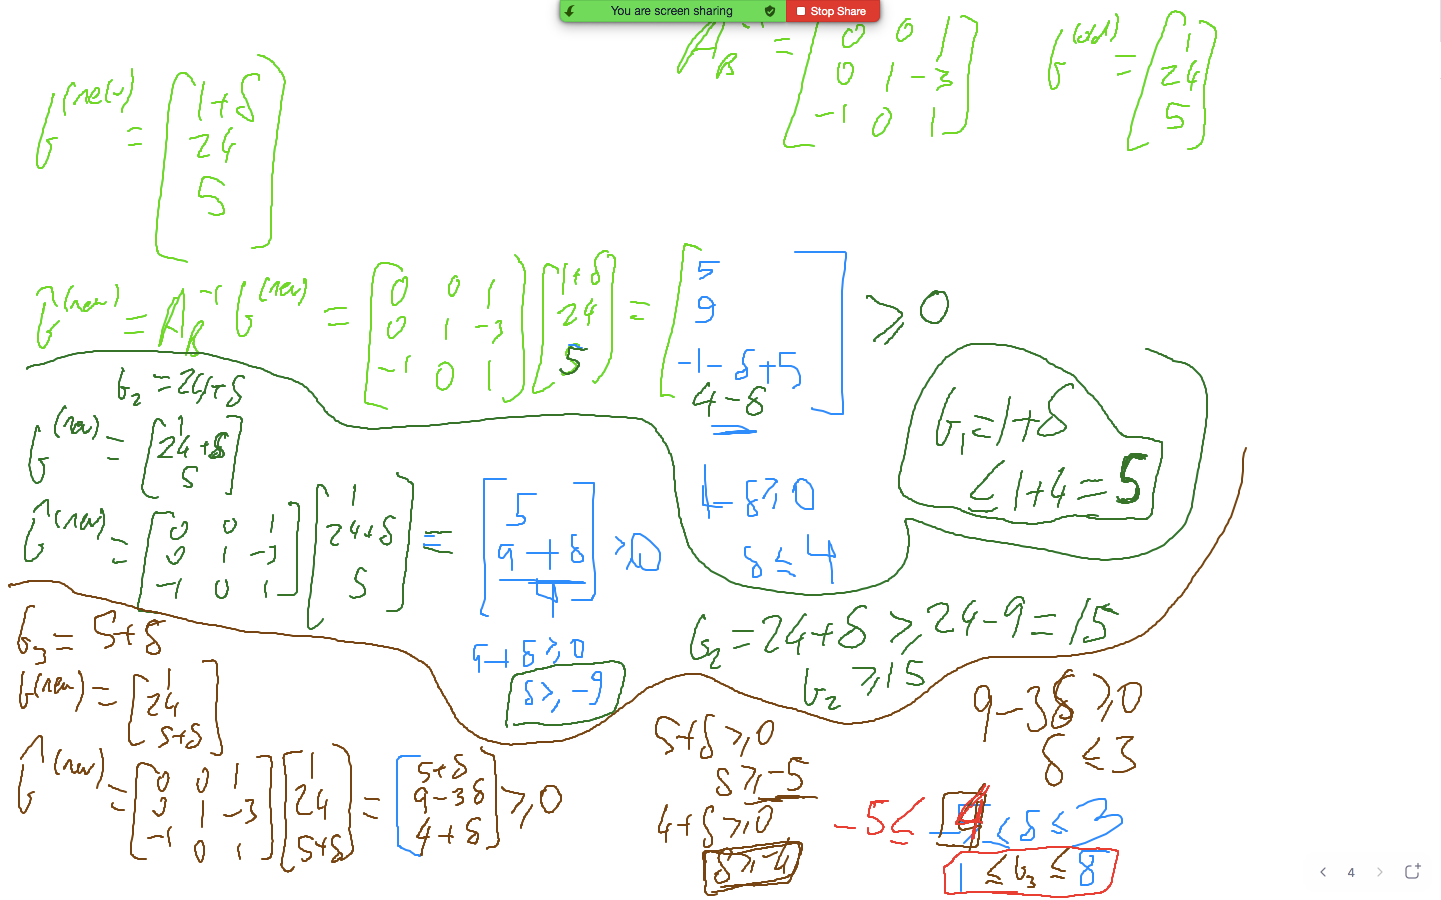 You are screen sharing
Stop Share
A_B^{-1} = [0 0 1; 0 1 -3; -1 0 1]
b^(old) = [1; 24; 5]
b^(new) = [1+δ; 24; 5]
b̂^(new) = A_B^{-1} b^(new) = [0 0 1; 0 1 -3; -1 0 1] [1+δ; 24; 5] = [5; 9; -1-δ+5] ≥ 0
4-δ
4-δ ≥ 0
δ ≤ 4
b_1 = 1+δ
≤ 1+4 = 5
b_2 = 24+δ
b^(new) = [1; 24+δ; 5]
b̂^(new) = [0 0 1; 0 1 -3; -1 0 1] [1; 24+δ; 5] = [5; 9+δ; 4] ≥ 0
9+δ ≥ 0
δ ≥ -9
b_2 = 24+δ ≥ 24-9 = 15
b_2 ≥ 15
b_3 = 5+δ
b^(new) = [1; 24; 5+δ]
b̂^(new) = [0 0 1; 0 1 -3; -1 0 1] [1; 24; 5+δ] = [5+δ; 9-3δ; 4+δ] ≥ 0
5+δ ≥ 0
δ ≥ -5
4+δ ≥ 0
δ ≥ -4
9-3δ ≥ 0
δ ≤ 3
-5 ≤ -4 ≤ δ ≤ 3
1 ≤ b_3 ≤ 8
4